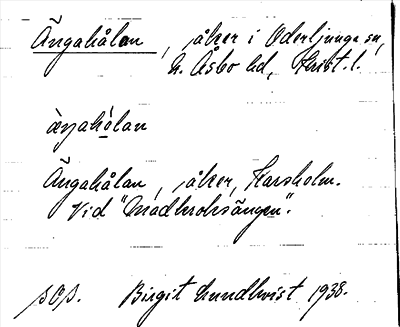 Ängahålan, åker i Oderljunga sn,
N. Åsbo hd, Krist. l.
àŋahòlan
Ängahålan, åker, Harsholm.
Vid "Madkroksängen".
Birgit Lundkvist 1938.